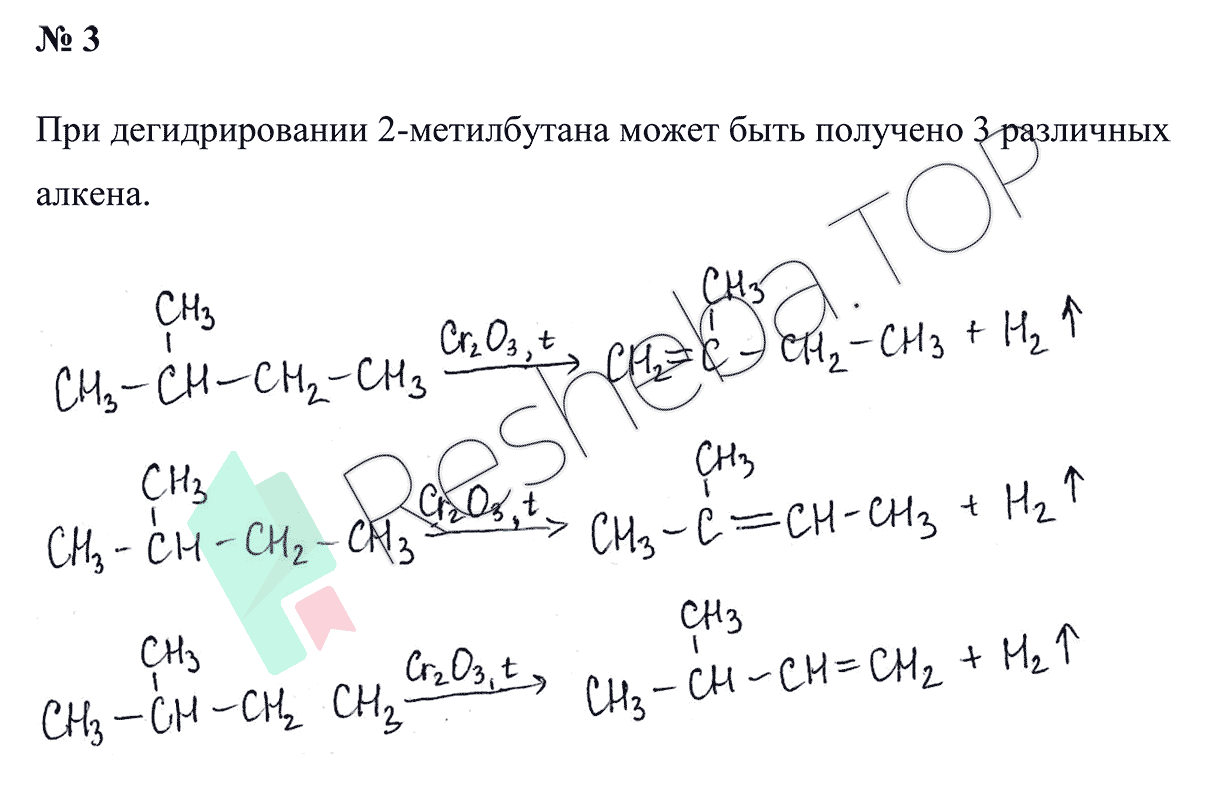 № 3
При дегидрировании 2-метилбутана может быть получено 3 различных
алкена.
CH₃
CH₃
CH₃ – CH – CH₂ – CH₃ Cr₂O₃, t → CH₂ = C – CH₂ – CH₃ + H₂ ↑
CH₃
CH₃
CH₃ – CH – CH₂ – CH₃ Cr₂O₃, t → CH₃ – C = CH – CH₃ + H₂ ↑
CH₃
CH₃
CH₃ – CH – CH₂ CH₃ Cr₂O₃, t → CH₃ – CH – CH = CH₂ + H₂ ↑
Resheba.TOP